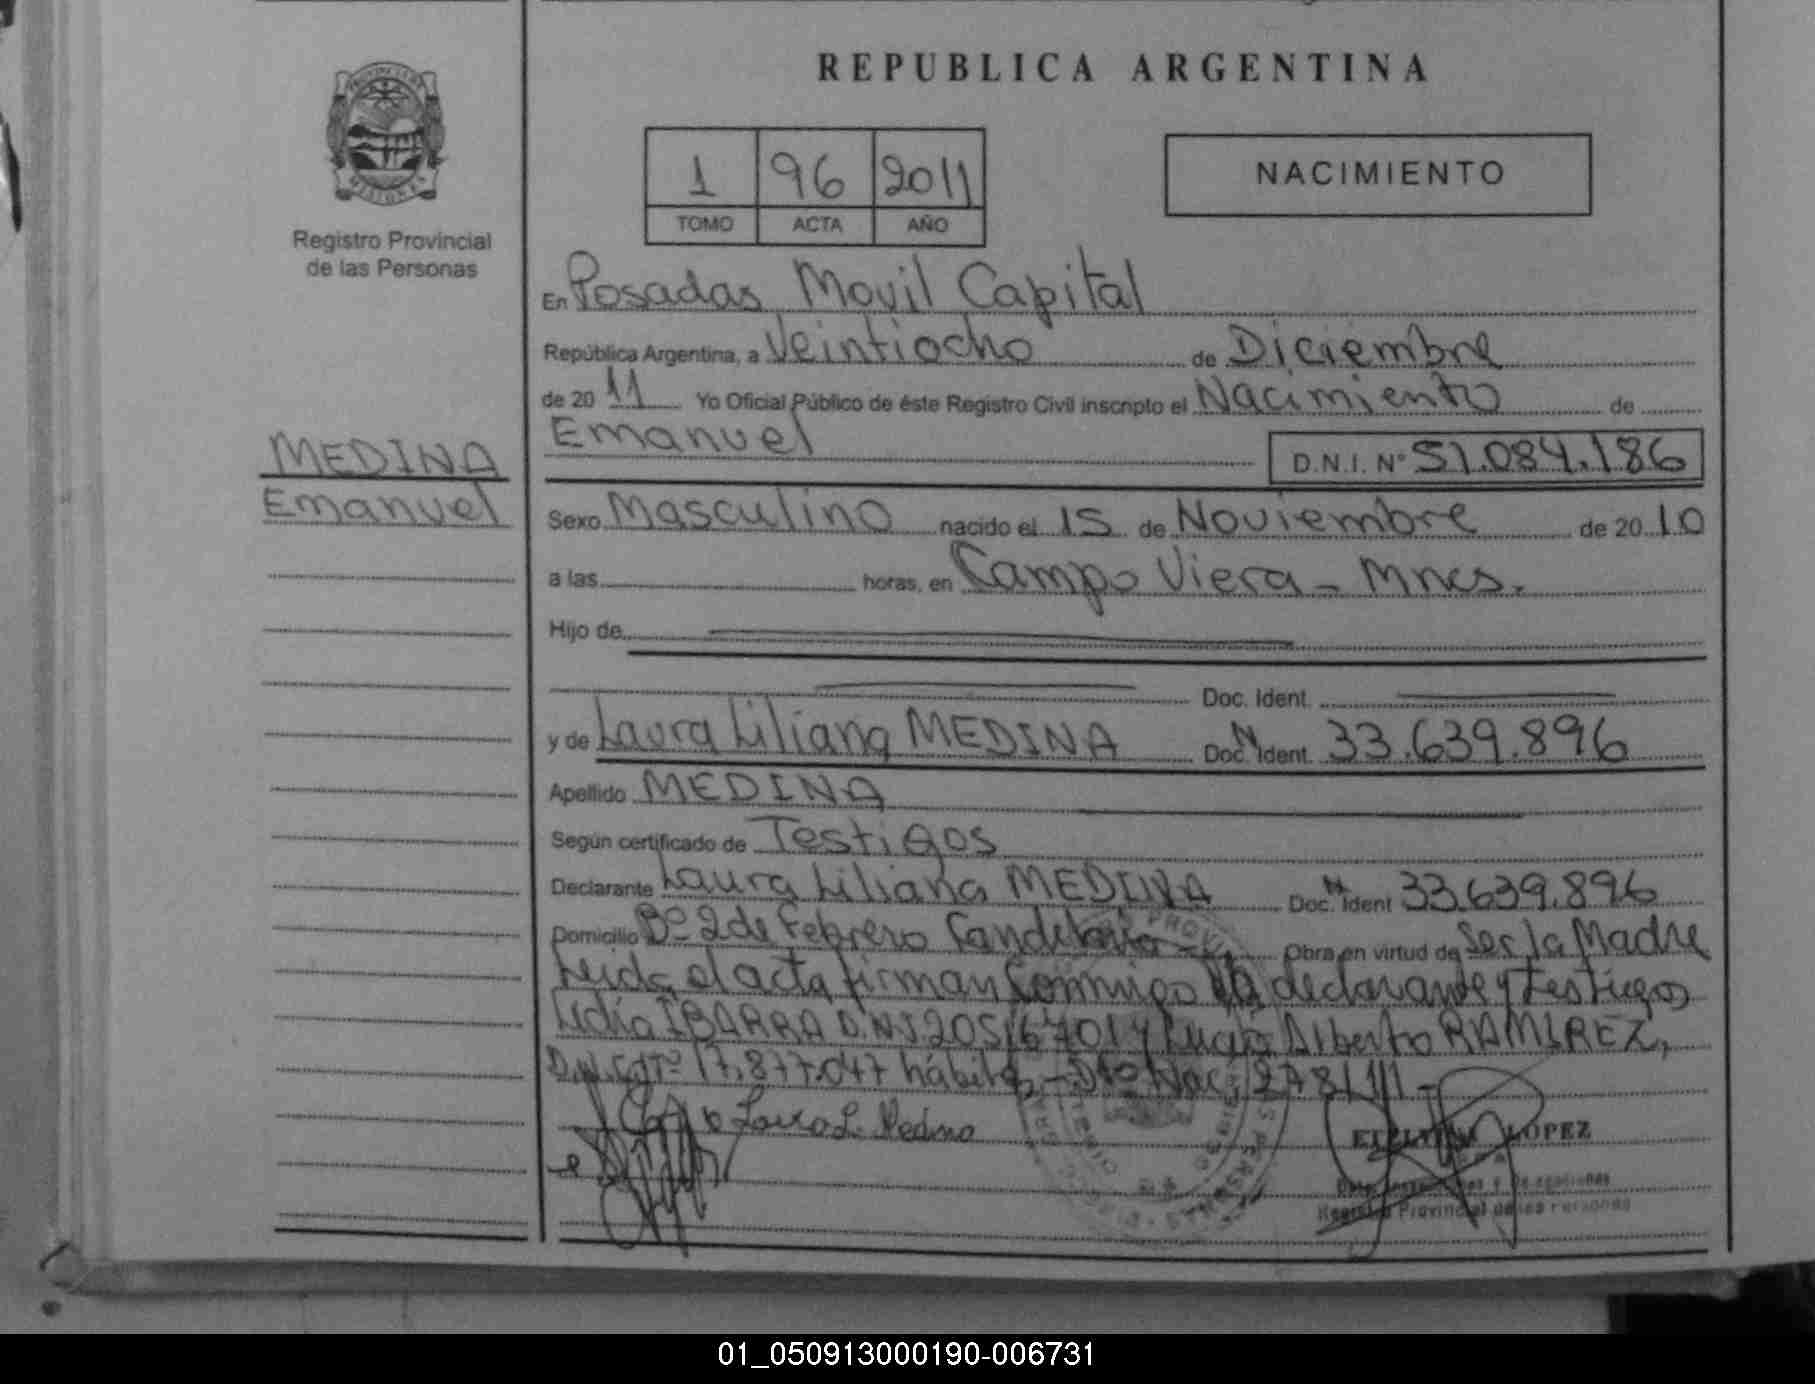 REPUBLICA ARGENTINA
PROVINCIA DE
MISIONES
Registro Provincial
de las Personas
1 96 2011
TOMO ACTA AÑO
NACIMIENTO
En Posadas Movil Capital
República Argentina, a Veintiocho de Diciembre
de 20 11 Yo Oficial Público de éste Registro Civil inscripto el Nacimiento de
MEDINA
Emanuel
Emanuel D.N.I. N° 51.084.186
Sexo Masculino nacido el 15 de Noviembre de 20 10
a las horas, en Campo Viera - Mnes.
Hijo de
Doc. Ident.
y de Laura Liliana MEDINA Doc. Ident. 33.639.896
Apellido MEDINA
Según certificado de Testigos
Declarante Laura Liliana MEDINA Doc. Ident 33.639.896
Domicilio B° 2 de Febrero Candelaria - Obra en virtud de Ser la Madre
Leida el acta firman conmigo la declarante y testigos
Lidia IBARRA D.N.I. y Alberto RAMIREZ,
17.877.047 hábiles - Dto Nac. 278/11 -
Laura L. Medina
LOPEZ
Registro Provincial de las Personas
01_050913000190-006731